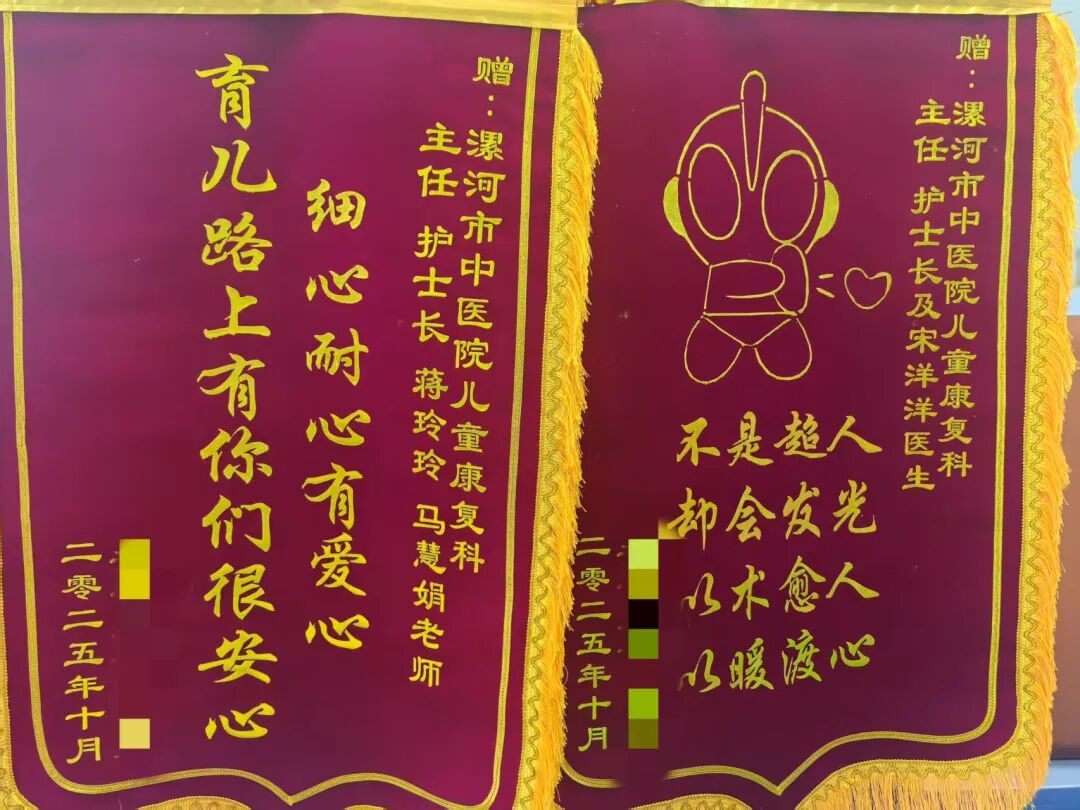 赠：漯河市中医院儿童康复科
主任 护士长 蒋玲玲 马慧娟老师
细心耐心有爱心
育儿路上有你们很安心
二零二五年十月
赠：漯河市中医院儿童康复科
主任 护士长及宋洋洋医生
不是超人
却会发光
以术愈人
以暖渡心
二零二五年十月